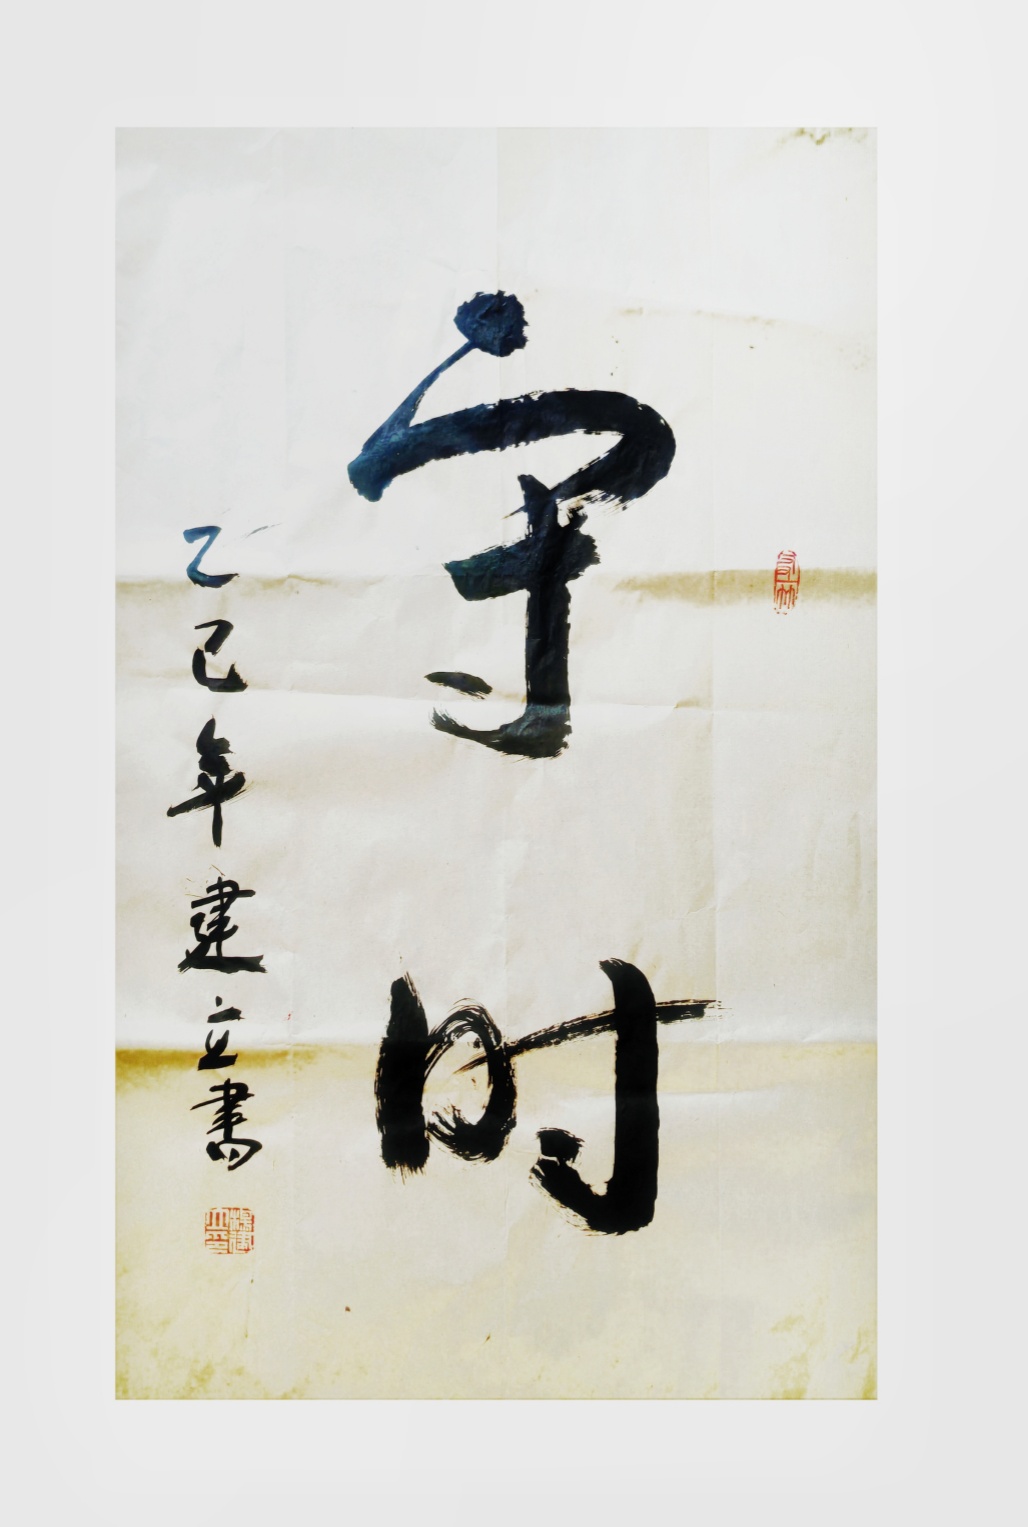 守时
乙巳年建立書